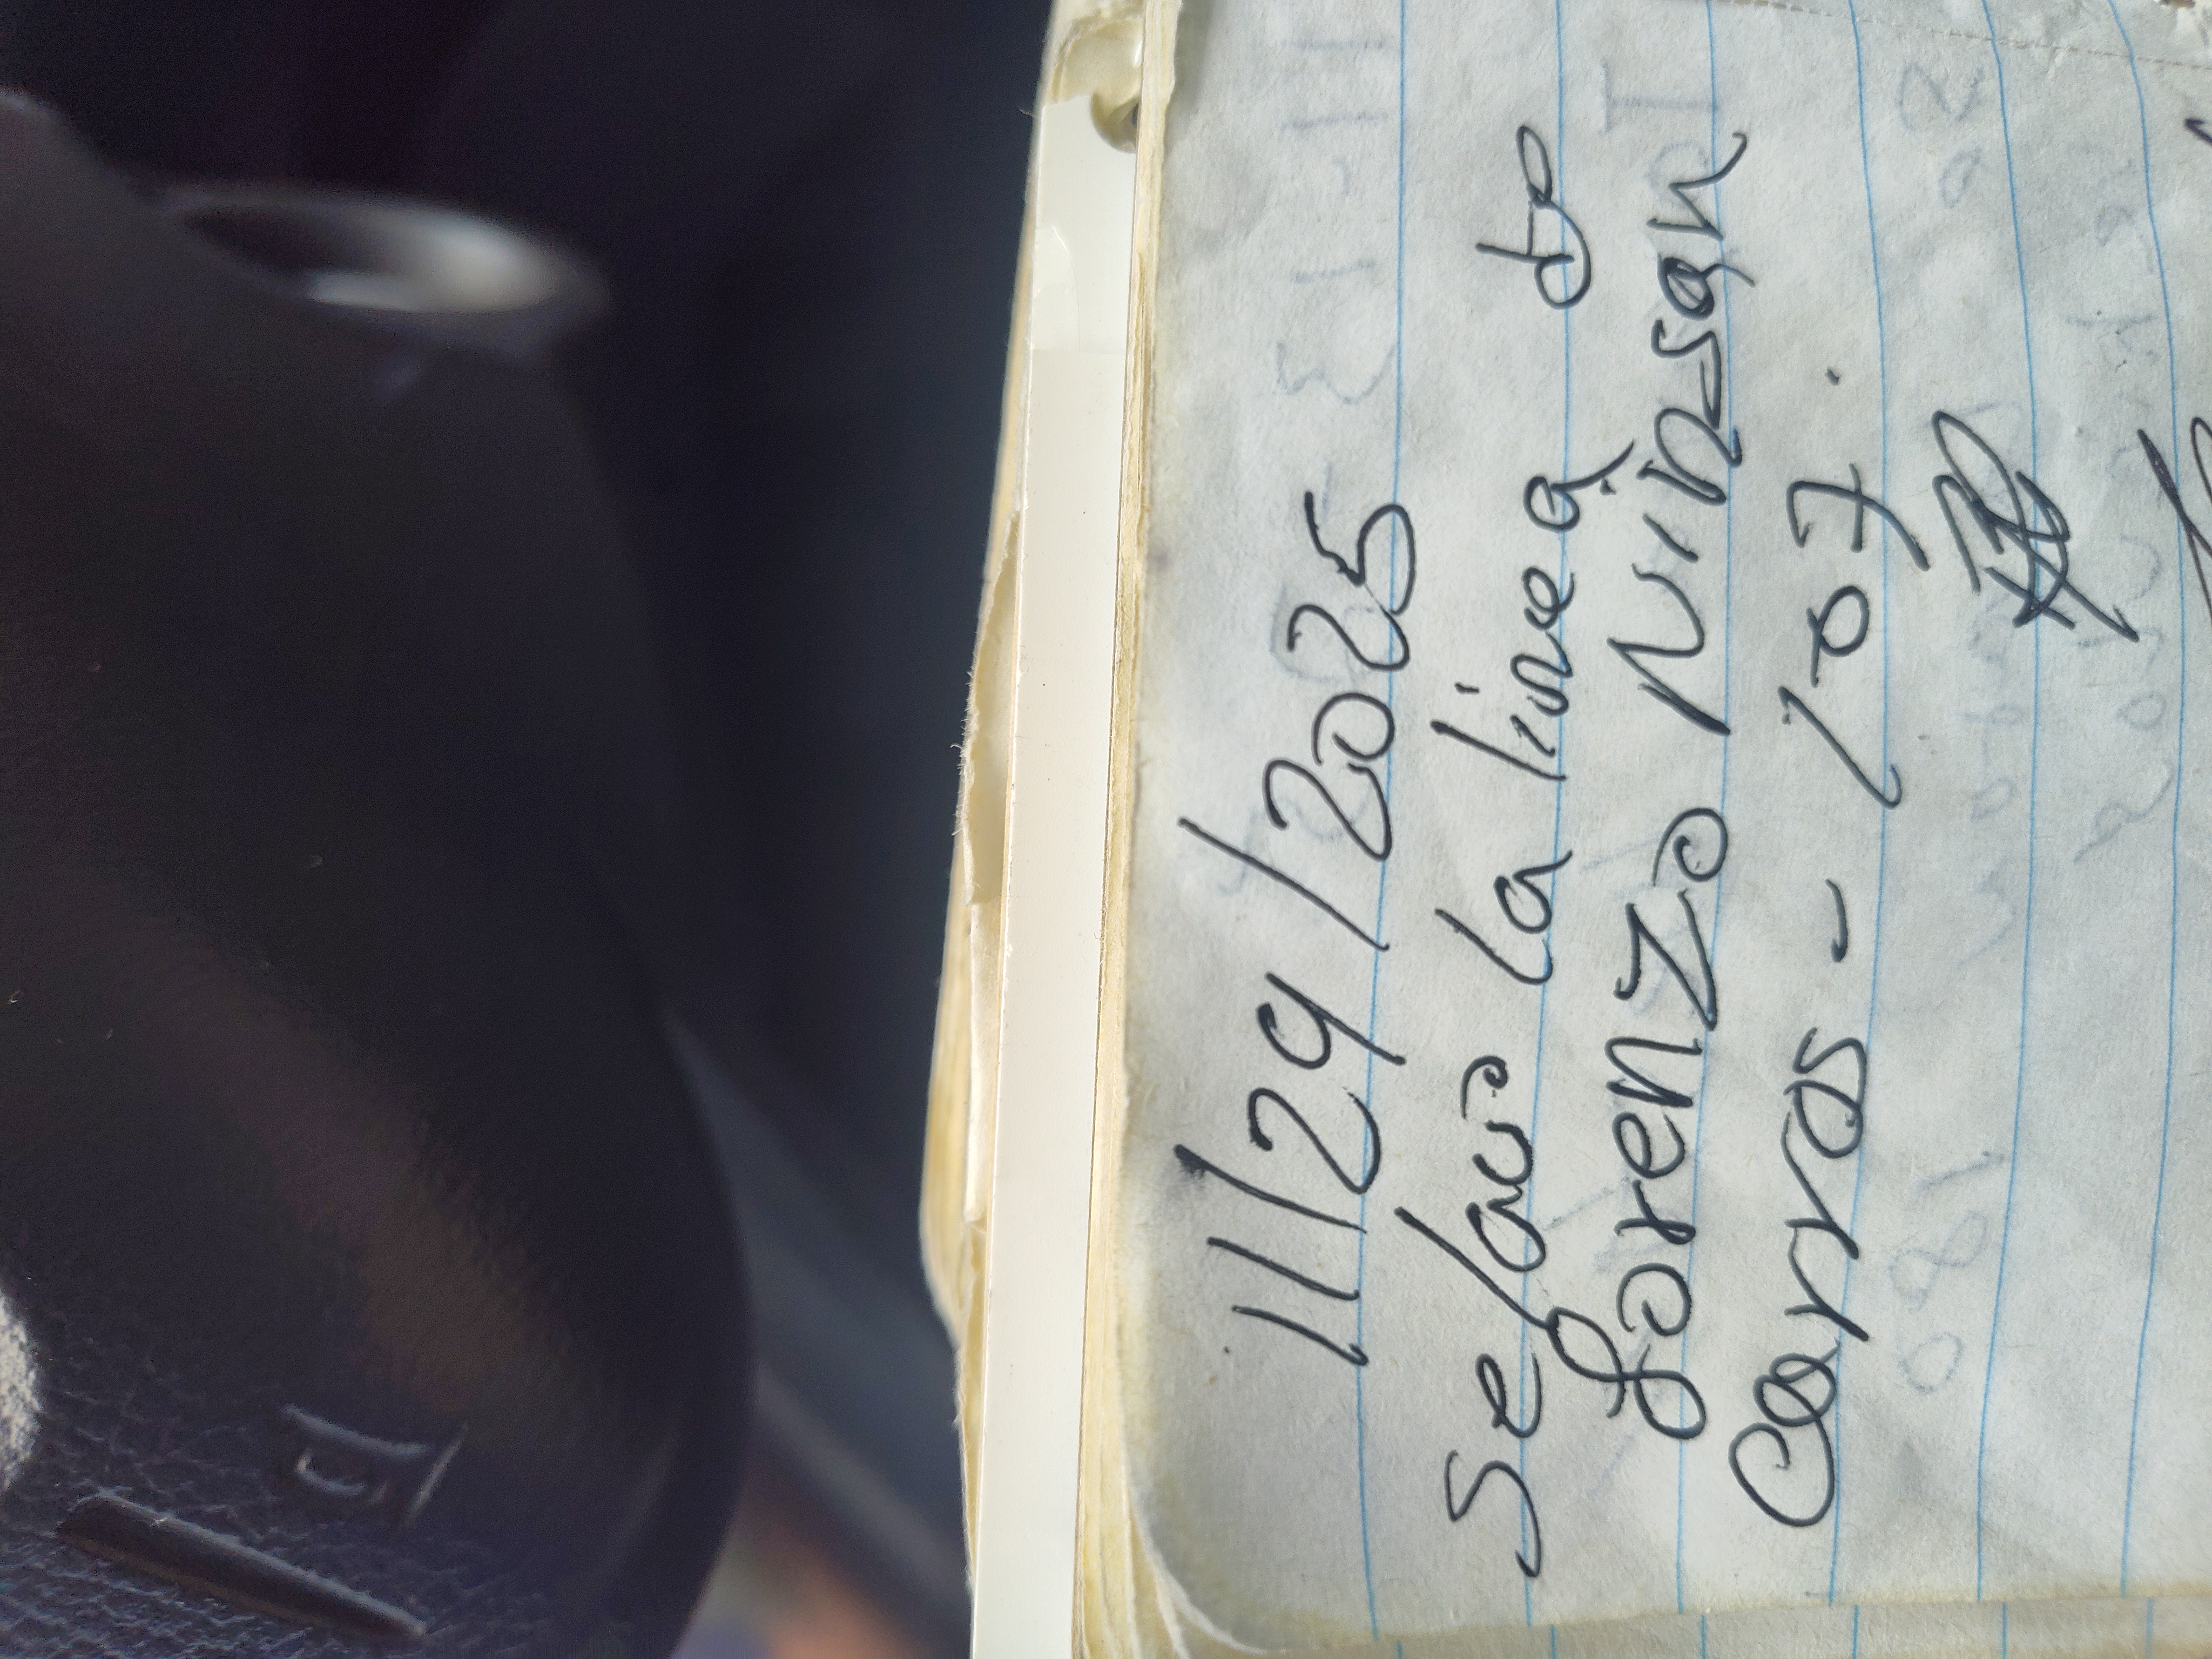 11/29/2025
se lavo la linea de
Lorenzo Ninssan
Carros - 107.